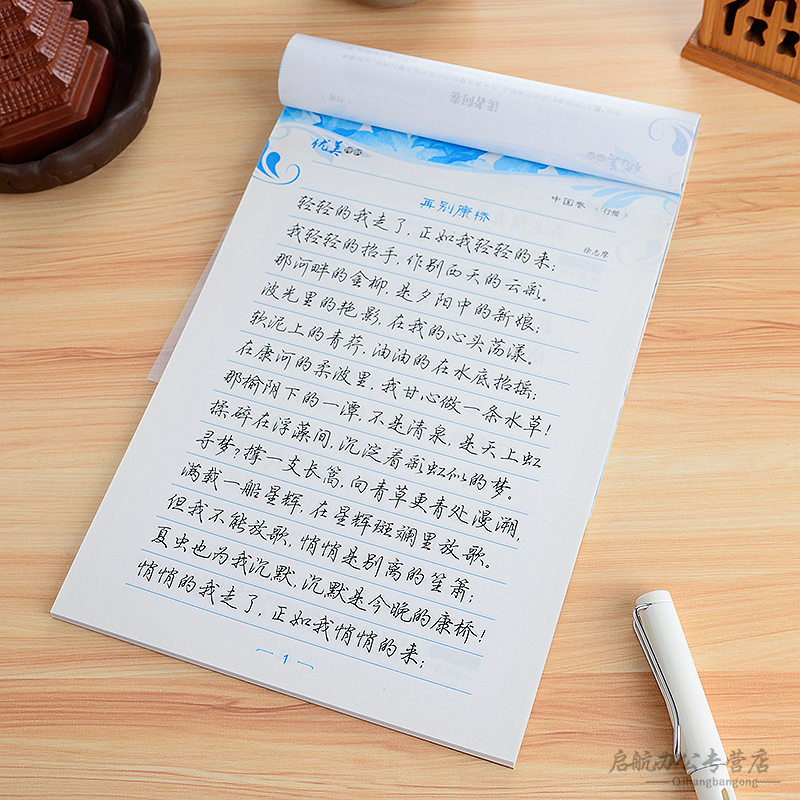 读者问卷
优美
中国卷（行楷）
再别康桥
徐志摩
轻轻的我走了，正如我轻轻的来；
我轻轻的招手，作别西天的云彩。
那河畔的金柳，是夕阳中的新娘；
波光里的艳影，在我的心头荡漾。
软泥上的青荇，油油的在水底招摇；
在康河的柔波里，我甘心做一条水草！
那榆阴下的一潭，不是清泉，是天上虹
揉碎在浮藻间，沉淀着彩虹似的梦。
寻梦？撑一支长篙，向青草更青处漫溯，
满载一船星辉，在星辉斑斓里放歌。
但我不能放歌，悄悄是别离的笙箫；
夏虫也为我沉默，沉默是今晚的康桥！
悄悄的我走了，正如我悄悄的来；
1
启航办公专营店
Qihangbangong